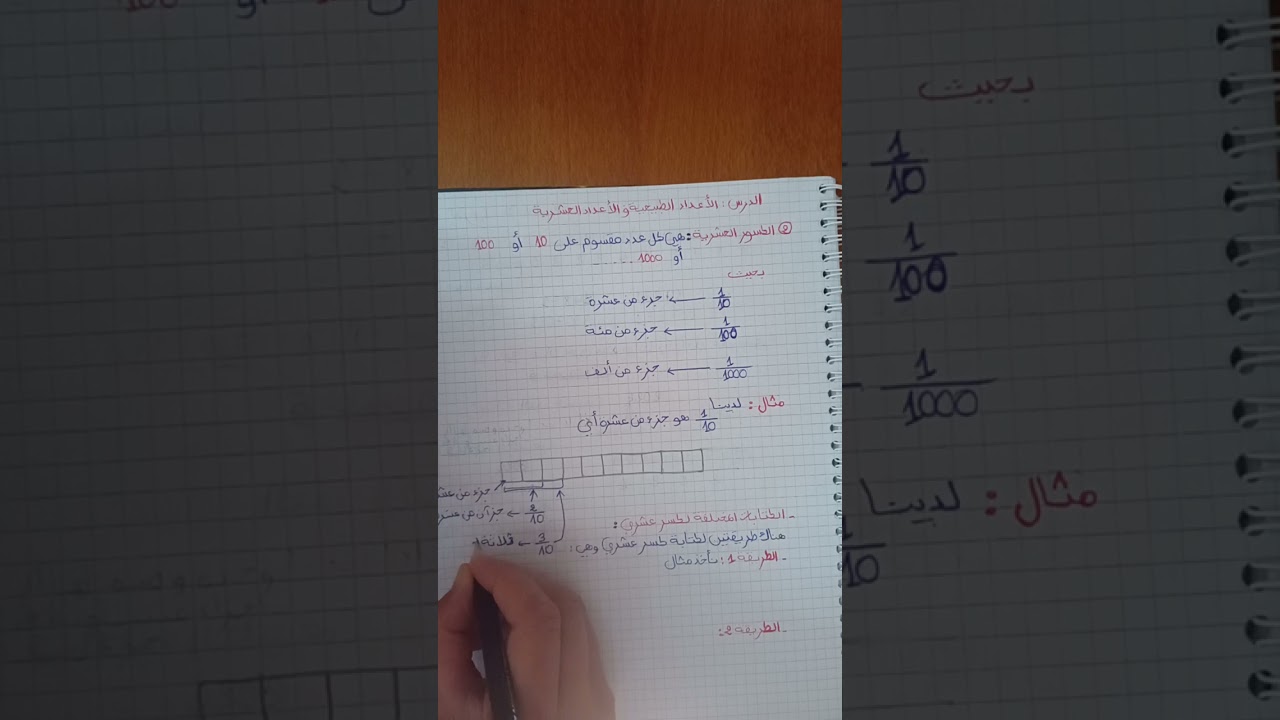 الدرس: الأعداد الطبيعية و الأعداد العشرية
② الكسور العشرية: هي كل عدد مقسوم على 10 أو 100
أو 1000 ......
بحيث
1/10 ← جزء من عشرة
1/100 ← جزء من مئة
1/1000 ← جزء من ألف
مثال: لدينا 1/10 هو جزء من عشرة أي
جزء من عش
2/10 ← جزآن من عشر
3/10 ← ثلاثة
- الكتابات المختلفة لكسر عشري:
هناك طريقتين لكتابة كسر عشري وهي:
- الطريقة 1: نأخذ مثال
- الطريقة 2: